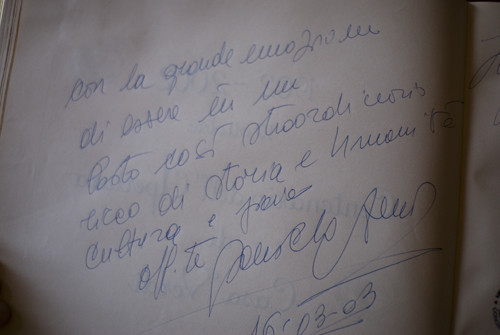 con la grande emozione
di essere in un
Posto così straordinario
ricco di storia e umanità
cultura e
aff.te
16-03-03